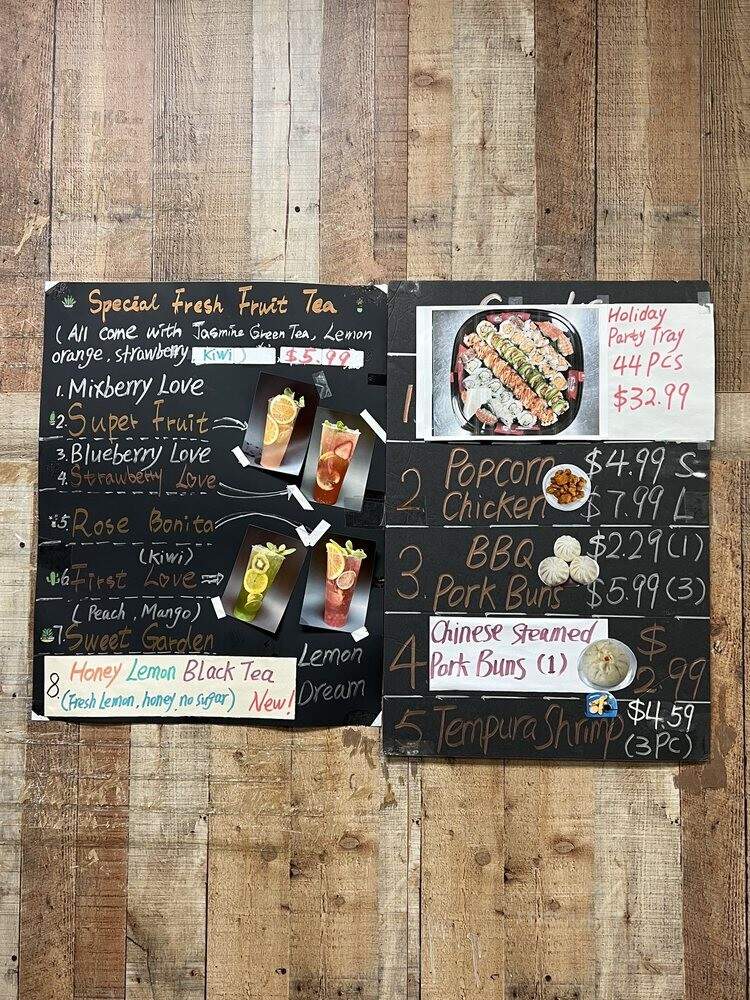 Special Fresh Fruit Tea
(All come with Jasmine Green Tea, Lemon
orange, strawberry Kiwi) $5.99
1. Mixberry Love
2. Super Fruit
3. Blueberry Love
4. Strawberry Love
5. Rose Bonita
(Kiwi)
6. First Love
(Peach, Mango)
7. Sweet Garden
8. Honey Lemon Black Tea
(Fresh Lemon, honey, no sugar) New!
Lemon
Dream
1.
Holiday
Party Tray
44 PCS
$32.99
2. Popcorn $4.99 S
Chicken $7.99 L
3. BBQ $2.29 (1)
Pork Buns $5.99 (3)
4. Chinese Steamed
Pork Buns (1)
$
2.99
5. Tempura Shrimp $4.59
(3PC)